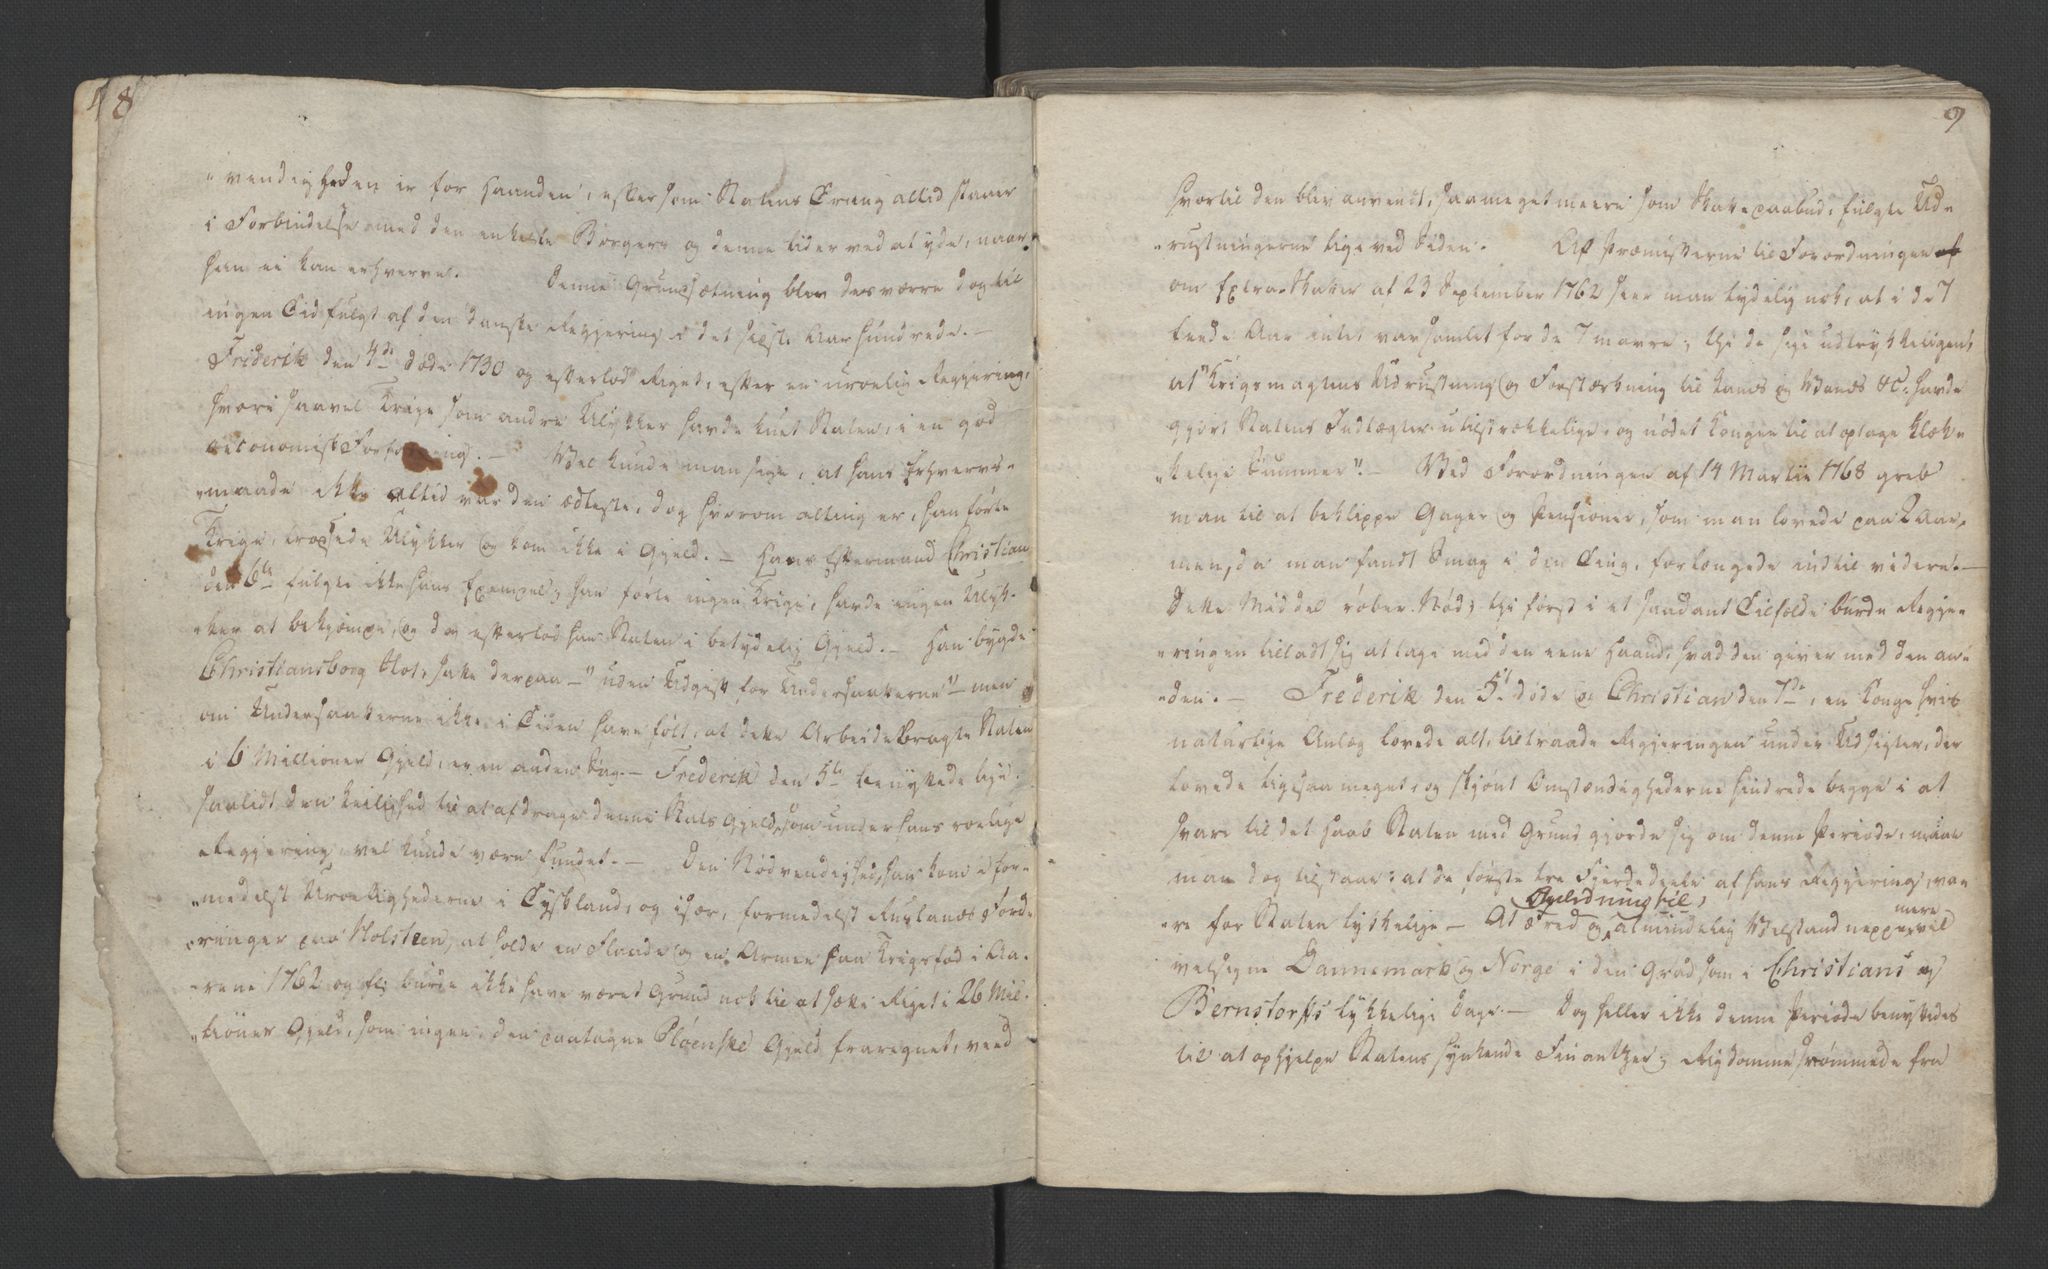 8
„vendigheden er for Haanden, eftersom Statens Trang altid staaer
i Forbindelse med den enkelte Borgers og denne lider ved at yde, naar
han ei kan erhverve. Denne Grundsætning blev desværre dog til
ingen Tid fulgt af den danske Regjering i det sidste Aarhundrede. —
Friderik den 4de døde 1730 og efterlod Riget, efter en uroelig Regjering,
hvori saavel Krige som andre Ulykker havde kuet Staten, i en god
oeconomisk Forfatning. — Vel kunde man sige, at hans Erhvervs-
„maade ikke altid var den ædleste, dog hvorom alting er, han førte
Krige, trodsede Ulykker og kom ikke i Gjeld. — Hans Eftermand Christian
den 6te fulgte ikke hans Exempel; han førte ingen Krige, havde ingen Ulyk-
„ker at bekjæmpe, og dog efterlod han Staten i betydelig Gjeld. — Han bygde
Christiansborg Slot, satte derpaa —" uden Udgift for Undersaatterne" — men
om Undersaatterne ikke i Tiden have følt, at dette Arbeide bragte Staten
i 6 Millioner Gjeld, er en anden Sag. — Frederik den 5te benyttede lige
saalidt den Leilighed til at afdrage denne Stats Gjeld, som under hans roelige
Regjering vel kunde være fundet. — Den Nødvendighed, han kom i for-
„medelst Uroelighederne i Tyskland, og især, formedelst Ruslands Ford-
„ringer paa Holsteen, at holde en Flaade og en Armee paa Krigsfod i Aa-
„rene 1762 og fl: burde ikke have været Grund nok til at sætte Riget i 26 Mil-
„lioner Gjeld, som ingen, den paatagne Pløenske Gjeld fraregnet, veed
9
hvortil den blev anvendt, saameget meere som Skattepaabud, fulgte Ud-
„rustningerne lige ved Siden. Af Præmisserne til Forordningen af
om Extra-Skatter af 23 September 1762 seer man tydelig nok, at i de 7
feede Aar intet var samlet for de 7 mavre; thi de sige udtrykkeligen,
at "Krigsmagtens Udrustning og Forstærkning til Lands og Vands &c. havde
gjort Statens Indtægter utilstrækkelige, og nødet Kongen til at optage klæk-
„kelige Summer". — Ved Forordningen af 14 Martii 1768 greb
man til at beklippe Gager og Pensioner, som man lovede paa 2 Aar,
men, da man fandt Smag i den Ting, forlængede indtil videre. —
Dette Middel røber Nød; thi først i et saadant Tilfælde burde Regje-
„ringen tilladt sig at tage med den eene Haand, hvad den giver med den an-
„den. — Frederik den 5te døde og Christian den 7de, en Konge hvis
naturlige Anlæg lovede alt, tiltraadte Regjeringen under Udsigter, der
lovede ligesaa meget, og skjønt Omstændighederne hindrede begge i at
svare til det Haab Staten med Grund gjorde sig om denne Periode, maae
man dog tilstaae: at de første tre Fjerdedeele af hans Regjering, va-
„re for Staten lykkelige — At Fred og Anledning til almindelig Velstand neppe mere vil
velsigne Dannemark og Norge i den Grad som i Christians og
Bernstorffs lykkelige Dage. — Dog heller ikke denne Periode benyttedes
til at ophjelpe Statens synkende Finantzer; Rigdomme strømmede fra